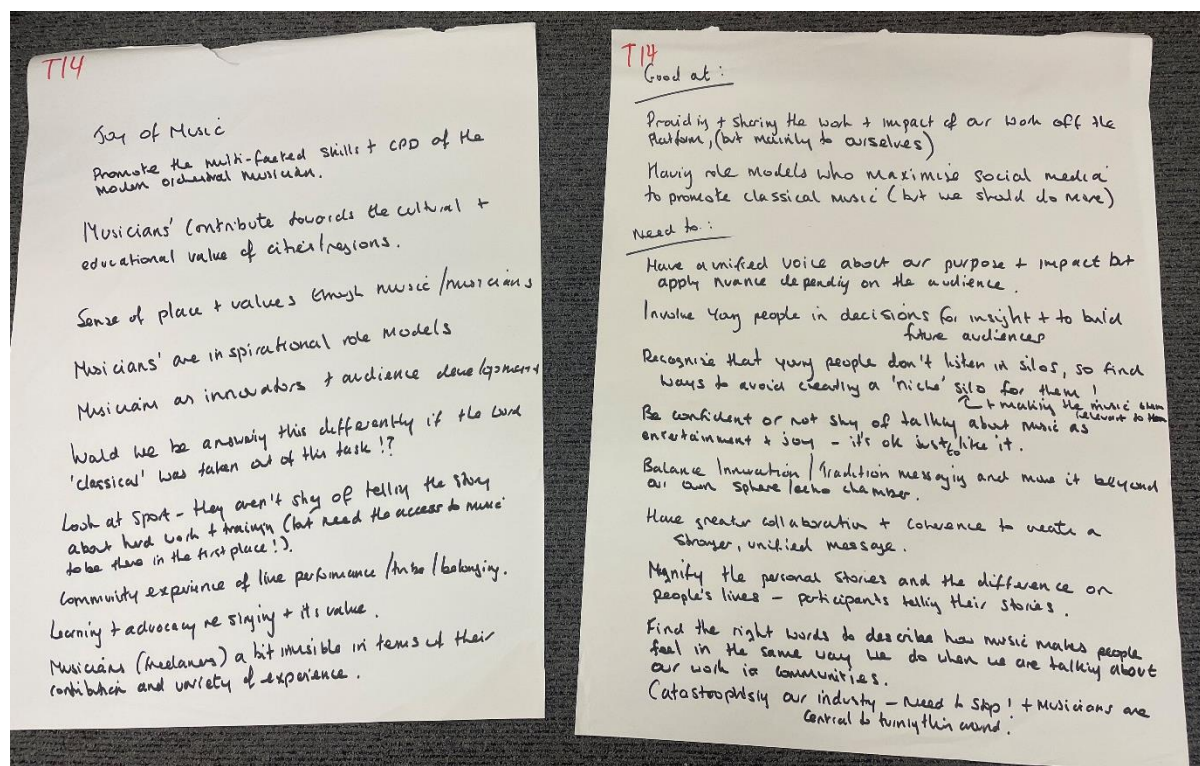 T14
Joy of Music
Promote the multi-faceted skills + CPD of the
modern orchestral musician.
Musicians' contribute towards the cultural +
educational value of cities/regions.
Sense of place + values through music/musicians
Musicians' are inspirational role models
Musicians as innovators + audience development
Would we be answering this differently if the word
'classical' was taken out of this task!?
Look at sport - they aren't shy of telling the story
about hard work + training (but need the access to music
to be there in the first place!).
Community experience of live performance/tribe/belonging.
Learning + advocacy re singing + its value.
Musicians (freelancers) a bit invisible in terms of their
contribution and variety of experience.
T14
Good at:
Providing + sharing the work + impact of our work off the
platform, (but mainly to ourselves)
Having role models who maximise social media
to promote classical music (but we should do more)
Need to:
Have a unified voice about our purpose + impact but
apply nuance depending on the audience.
Involve young people in decisions for insight + to build
future audiences
Recognise that young people don't listen in silos, so find
ways to avoid creating a 'niche' silo for them!
+ making the music seem
relevant to them
Be confident or not shy of talking about music as
entertainment + joy - it's ok just to like it.
Balance Innovation/Tradition messaging and move it beyond
our own sphere/echo chamber.
Have greater collaboration + coherence to create a
stronger, unified message.
Magnify the personal stories and the difference on
people's lives - participants telling their stories.
Find the right words to describe how music makes people
feel in the same way we do when we are talking about
our work in communities.
Catastrophising our industry - need to stop! + Musicians are
central to turning this around.